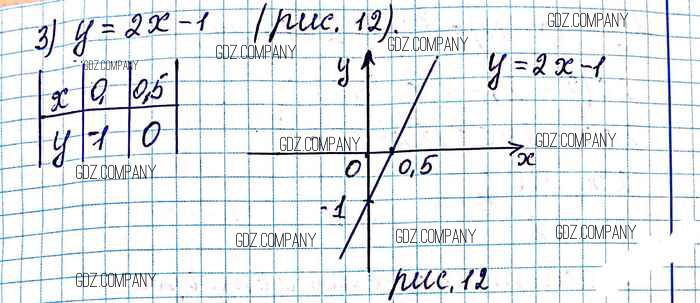 3) y = 2x - 1 (рис. 12).
GDZ.COMPANY
GDZ.COMPANY
GDZ.COMPANY
GDZ.COMPANY
x 0 0,5
y -1 0
y
y = 2x - 1
GDZ.COMPANY
GDZ.COMPANY
0 0,5 x
GDZ.COMPANY
-1
GDZ.COMPANY
GDZ.COMPANY
GDZ.COMPANY
GDZ.COMPANY
рис. 12